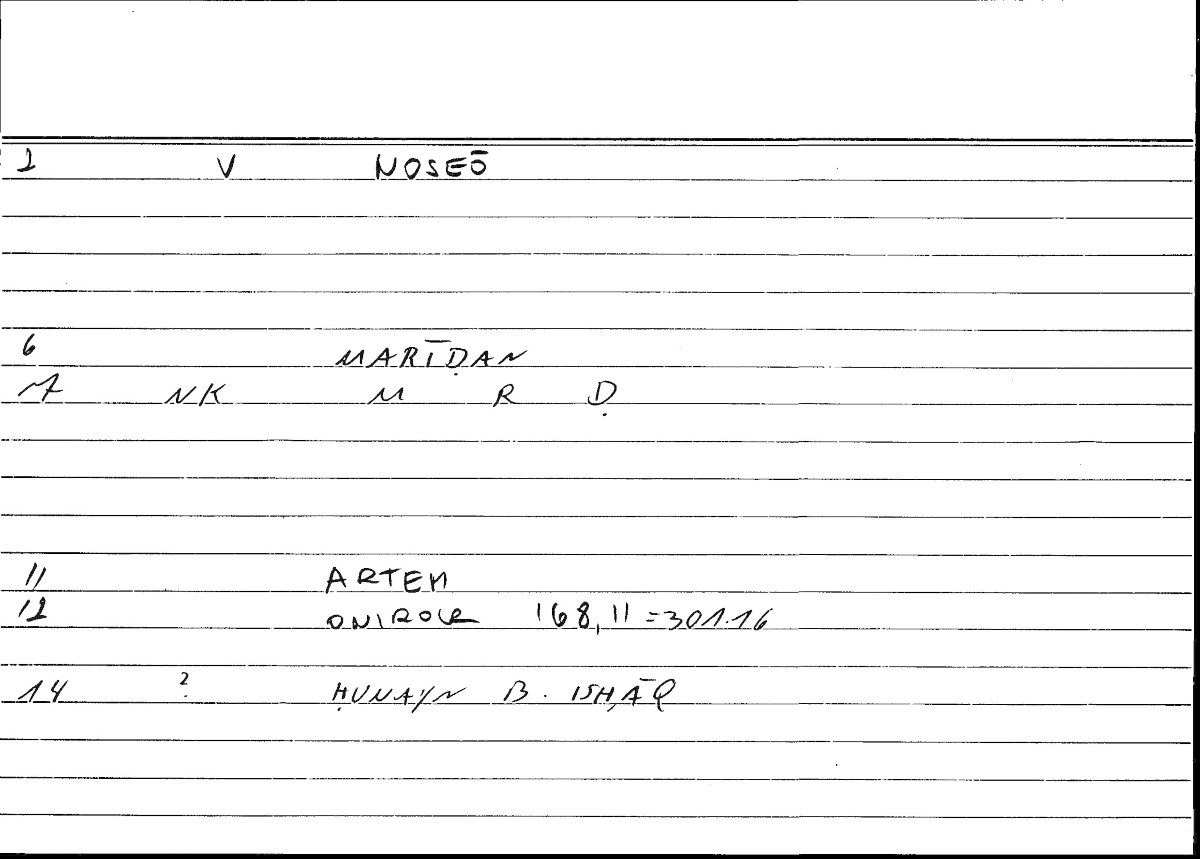 2 V NOSEŌ
6 MARĪḌAN
7 NK M R Ḍ
11 ARTEM
12 ONIROCR 168,11 = 301.16
14 ? ḤUNAYN B. ISḤĀQ